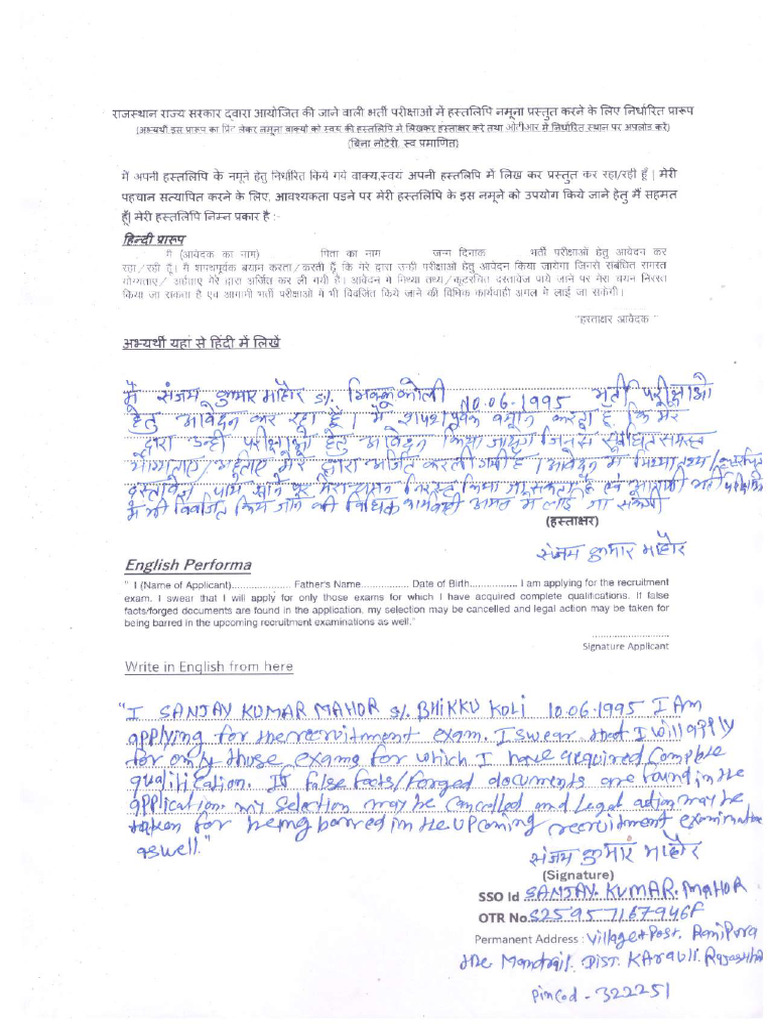 राजस्थान राज्य सरकार द्वारा आयोजित की जाने वाली भर्ती परीक्षाओ में हस्तलिपि नमूना प्रस्तुत करने के लिए निर्धारित प्रारूप
(अभ्यर्थी इस प्रारूप का प्रिंट लेकर नमूना वाक्यों को स्वयं की हस्तलिपि में लिखकर हस्ताक्षर करे तथा ओटीआर में निर्धारित स्थान पर अपलोड करे)
(बिना नोटेरी, स्व प्रमाणित)
में अपनी हस्तलिपि के नमूने हेतु निर्धारित किये गये वाक्य,स्वयं अपनी हस्तलिपि में लिख कर प्रस्तुत कर रहा/रही हूँ | मेरी
पहचान सत्यापित करने के लिए, आवश्यकता पडने पर मेरी हस्तलिपि के इस नमूने को उपयोग किये जाने हेतु मैं सहमत
हूँ| मेरी हस्तलिपि निम्न प्रकार है :-
हिन्दी प्रारूप
मै (आवेदक का नाम) पिता का नाम जन्म दिनाक भर्ती परीक्षाओं हेतु आवेदन कर
रहा/रही हूँ। मै शपथपूर्वक बयान करता/करती हूँ कि मेरे द्वारा उन्ही परीक्षाओं हेतु आवेदन किया जायेगा जिनसे संबंधित समस्त
योग्यताए/ अर्हताए मेरे द्वारा अर्जित कर ली गयी है। आवेदन मे मिथ्या तथ्य/कूटरचित दस्तावेज पाये जाने पर मेरा चयन निरस्त
किया जा सकता है एवं आगामी भर्ती परीक्षाओ मे भी विवर्जित किये जाने की विधिक कार्यवाही अमल मे लाई जा सकेगी।
"हस्ताक्षर आवेदक "
अभ्यर्थी यहां से हिंदी में लिखें
मैं संजय कुमार माहोर s/. भिक्कू कोली 10.06.1995 भर्ती परीक्षाओ
हेतु आवेदन कर रहा हूँ। मै शपथपूर्वक बयान करता हूँ कि मेरे
द्वारा उन्ही परीक्षाओ हेतु आवेदन किया जायेगा जिनसे संबंधित समस्त
योग्यताए/अर्हताए मेरे द्वारा अर्जित करली गयी है। आवेदन मे मिथ्या तथ्य/कूटरचित
दस्तावेज पाये जाने पर मेरा चयन निरस्त किया जा सकता है एवं आगामी भर्ती परीक्षाओ
मे भी विवर्जित किये जाने की विधिक कार्यवाही अमल मे लाई जा सकेगी
(हस्ताक्षर)
संजय कुमार माहोर
English Performa
" I (Name of Applicant)............... Father's Name............... Date of Birth............... I am applying for the recruitment
exam. I swear that I will apply for only those exams for which I have acquired complete qualifications. If false
facts/forged documents are found in the application, my selection may be cancelled and legal action may be taken for
being barred in the upcoming recruitment examinations as well."
Signature Applicant
Write in English from here
"I SANJAY KUMAR MAHOR s/. BHIKKU KOLI 10.06.1995 I Am
applying for the recruitment exam. I swear that I will apply
for only those exams for which I have acquired Complete
qualification. If false facts/forged documents are found in the
application. my selection may be Cancelled and Legal action may be
taken for being barred in the upcoming recruitment examination
as well."
संजय कुमार माहोर
(Signature)
SSO Id SANJAY.KUMAR.MAHOR
OTR No. S25957167946F
Permanent Address : Village+Post. Ranipura
the Mandrail. DIST. KArauli. Rajastha
Pincod - 322251